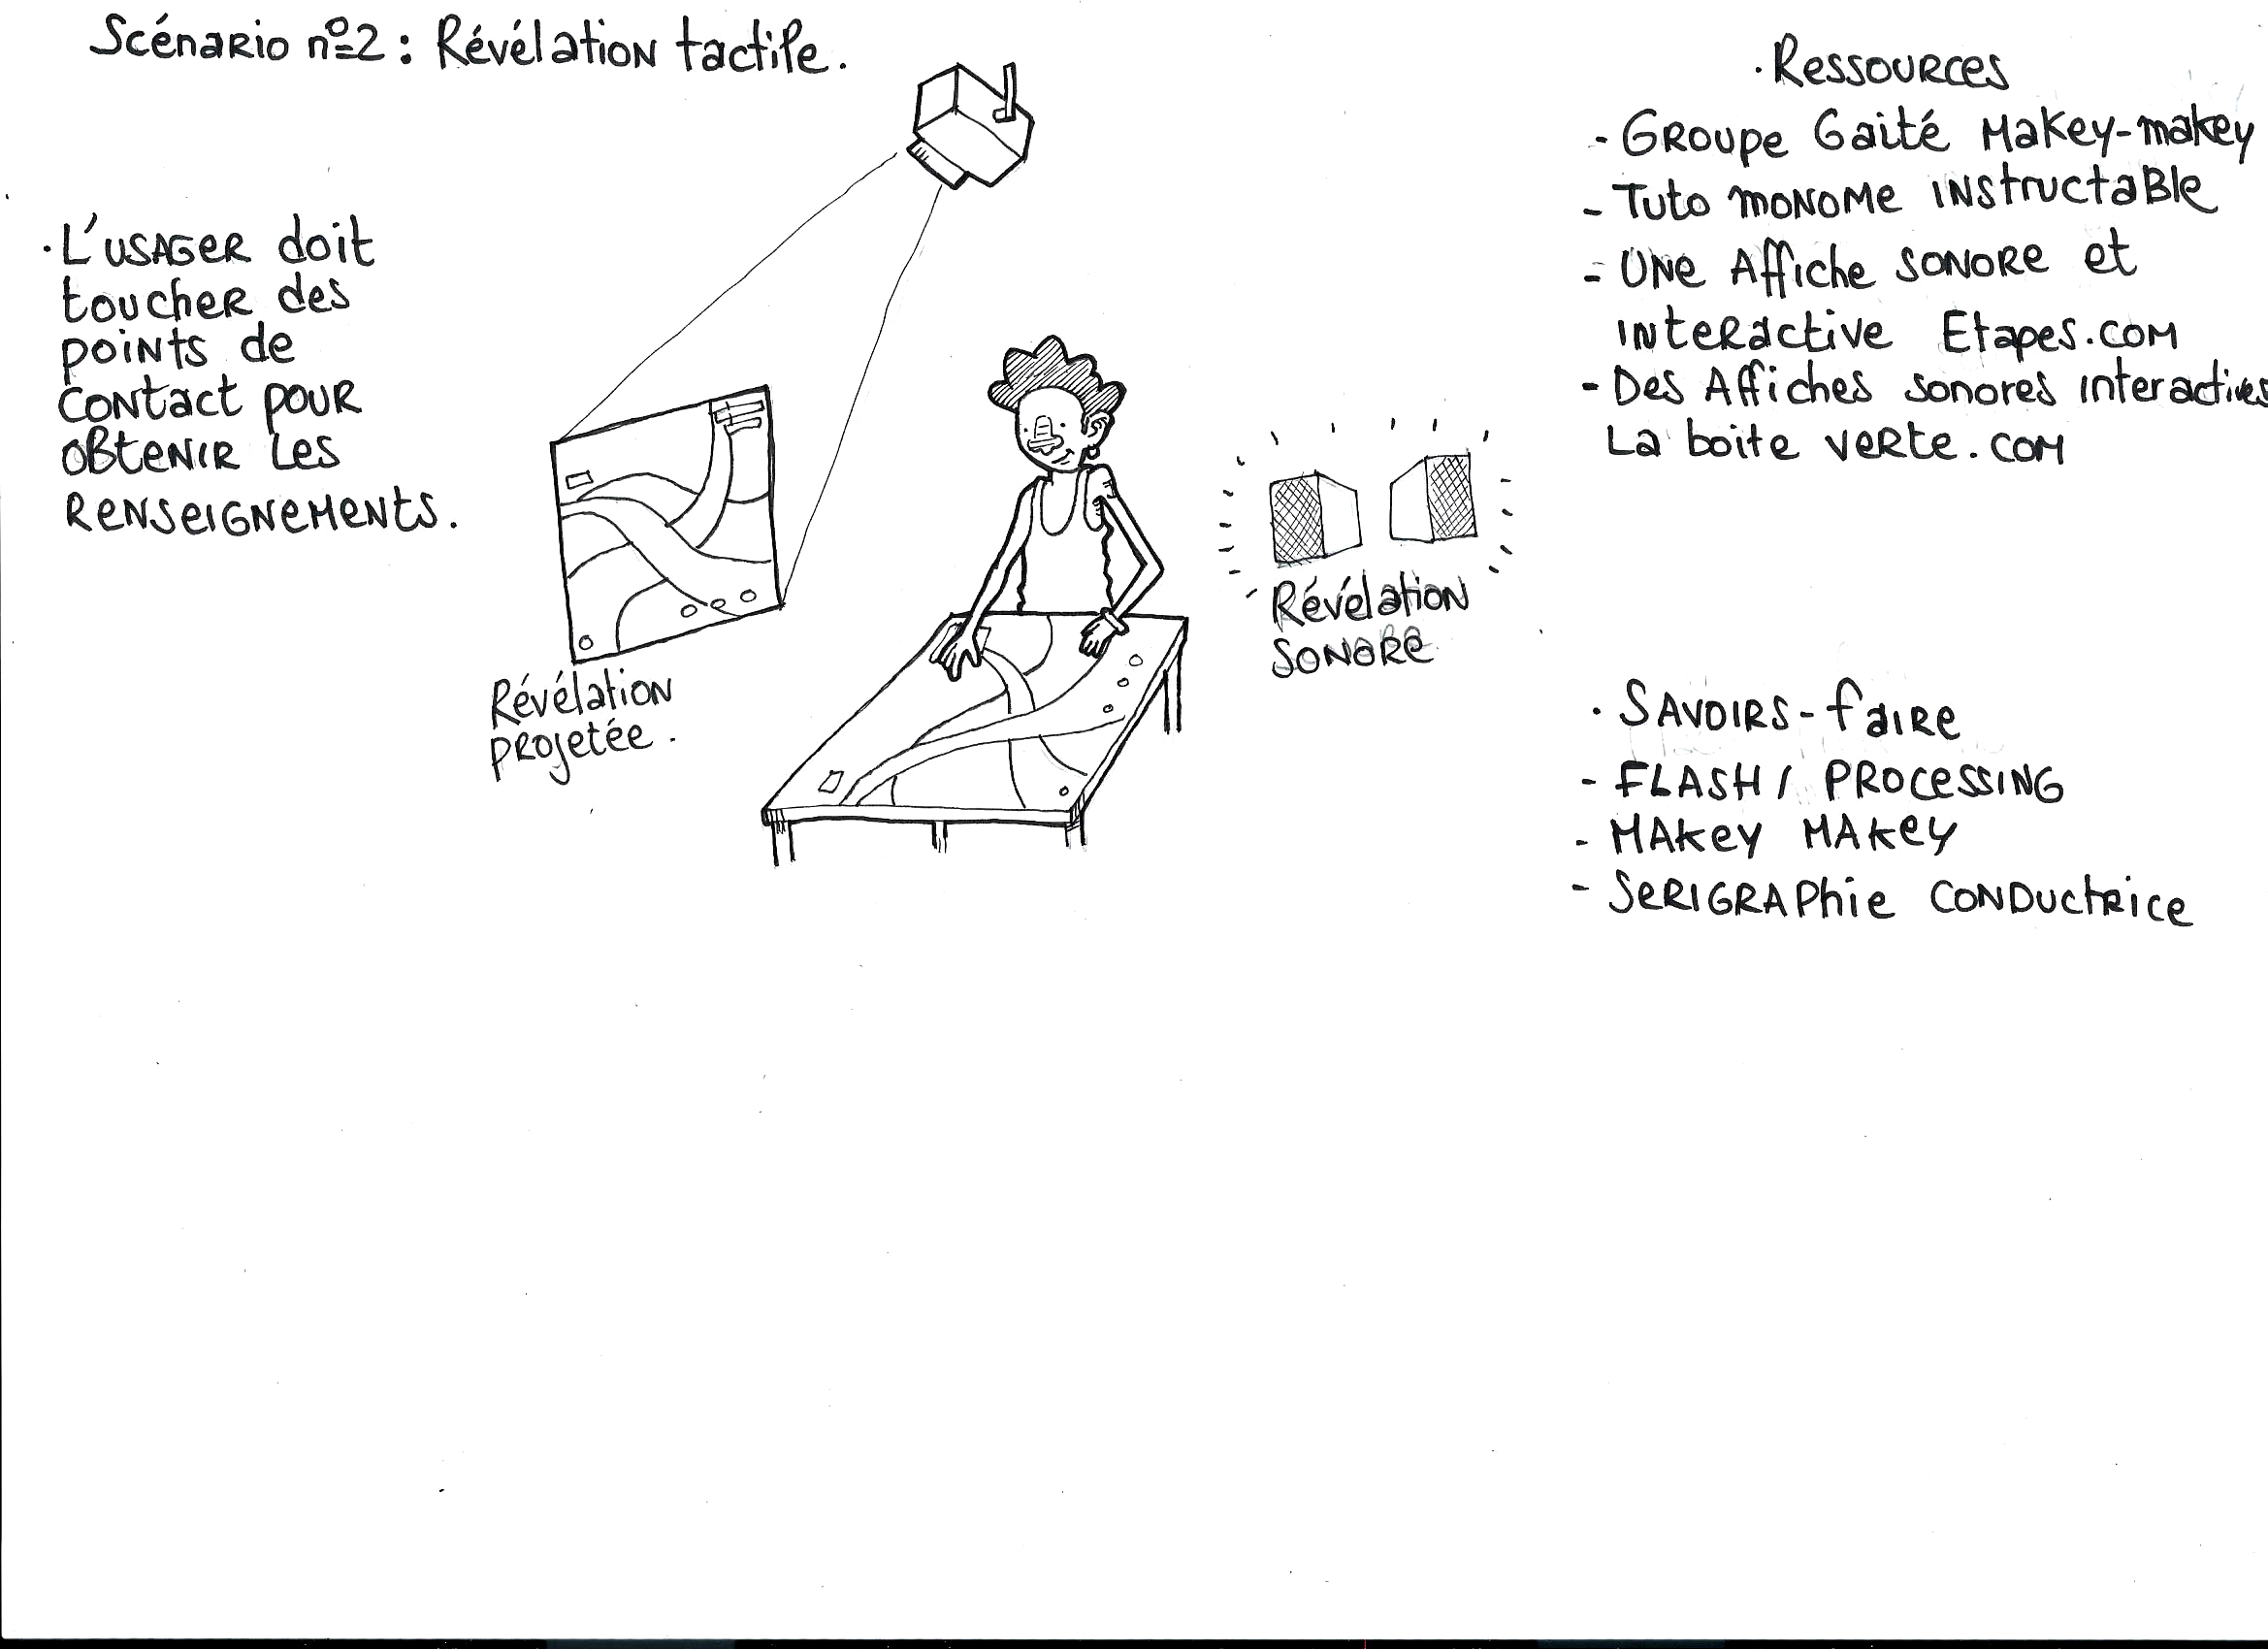 Scénario nº2 : Révélation tactile.
· L'usager doit
toucher des
points de
contact pour
obtenir les
renseignements.
Révélation
projetée.
Révélation
sonore
· Ressources
- Groupe Gaité Makey-makey
- Tuto monome instructable
- Une Affiche sonore et
interactive Etapes.com
- Des Affiches sonores interactives
La boite verte.com
· Savoirs-faire
- FLASH / PROCESSING
- MAKEY MAKEY
- SERIGRAPHIE CONDUCTRICE